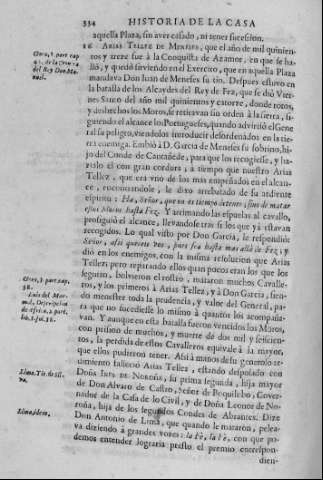 334 HISTORIA DE LA CASA
aquella Plaza, sin aver casado, ni tener sucesion.
16 ARIAS TELLEZ DE MENESES, que el año de mil quinien-
tos y treze fue à la Conquista de Azamor, en que se ha-
llò, y quedò sirviendo en el Exercito, que en aquella Plaza
mandava Don Juan de Meneses su tio. Despues estuvo en
la batalla de los Alcaydes del Rey de Fez, que se diò Vier-
nes Santo del año mil quinientos y catorze, donde rotos,
y deshechos los Moros, se retiravan sin orden à la sierra, si-
guiendo el alcance los Portugueses, quando advirtiò el Gene
ral su peligro, viendolos introducir desordenados en la tie-
rra enemiga. Embiò à D. Garcia de Meneses su sobrino, hi-
jo del Conde de Cantañede, para que los recogiesse, y ha-
ziendolo el con gran cordura, à tiempo que nuestro Arias
Tellez, que era vno de los mas empeñados en el alcan-
ce, reconociendole, le dixo arrebatado de su ardiente
espiritu: Ha, Señor, que no es tiempo detener, sino de matar
estos Moros hasta Fez. Y arrimando las espuelas al cavallo,
prosiguiò el alcance, llevandose tras sì los que yà estavan
recogidos. Lo qual visto por Don Garcia, le respondiò:
Señor, assi quereis vos, pues sea hasta mas allà de Fez; y
diò en los enemigos, con la misma resolucion que Arias
Tellez; pero reparando ellos quan pocos eran los que los
seguian, bolvieron el rostro, mataron muchos Cavalle-
ros, y los primeros à Arias Tellez, y à Don Garcia, sien-
do menester toda la prudencia, y valor del General, pa-
ra que no sucediesse lo mismo à quantos los acompaña-
van. Y aunque en esta batalla fueron vencidos los Moros,
con prision de muchos, y muerte de dos mil y seiscien-
tos, la perdida de estos Cavalleros equivale à la mayor,
que ellos pudieron tener. Assi à manos de su generoso ar-
dimiento falleciò Arias Tellez, estando desposado con
DOÑA INES DE NOROÑA, su prima segunda, hija mayor
de Don Alvaro de Castro, señor de Boquilobo, Gover-
nador de la Casa de lo Civil, y de Doña Leonor de No-
roña, hija de los segundos Condes de Abrantes. Dize
Don Antonio de Lima, que quando le mataron, pelea-
va diziendo à grandes vozes: la Fè, la Fè, con que po-
demos entender lograria presto el premio correspon-
dien-